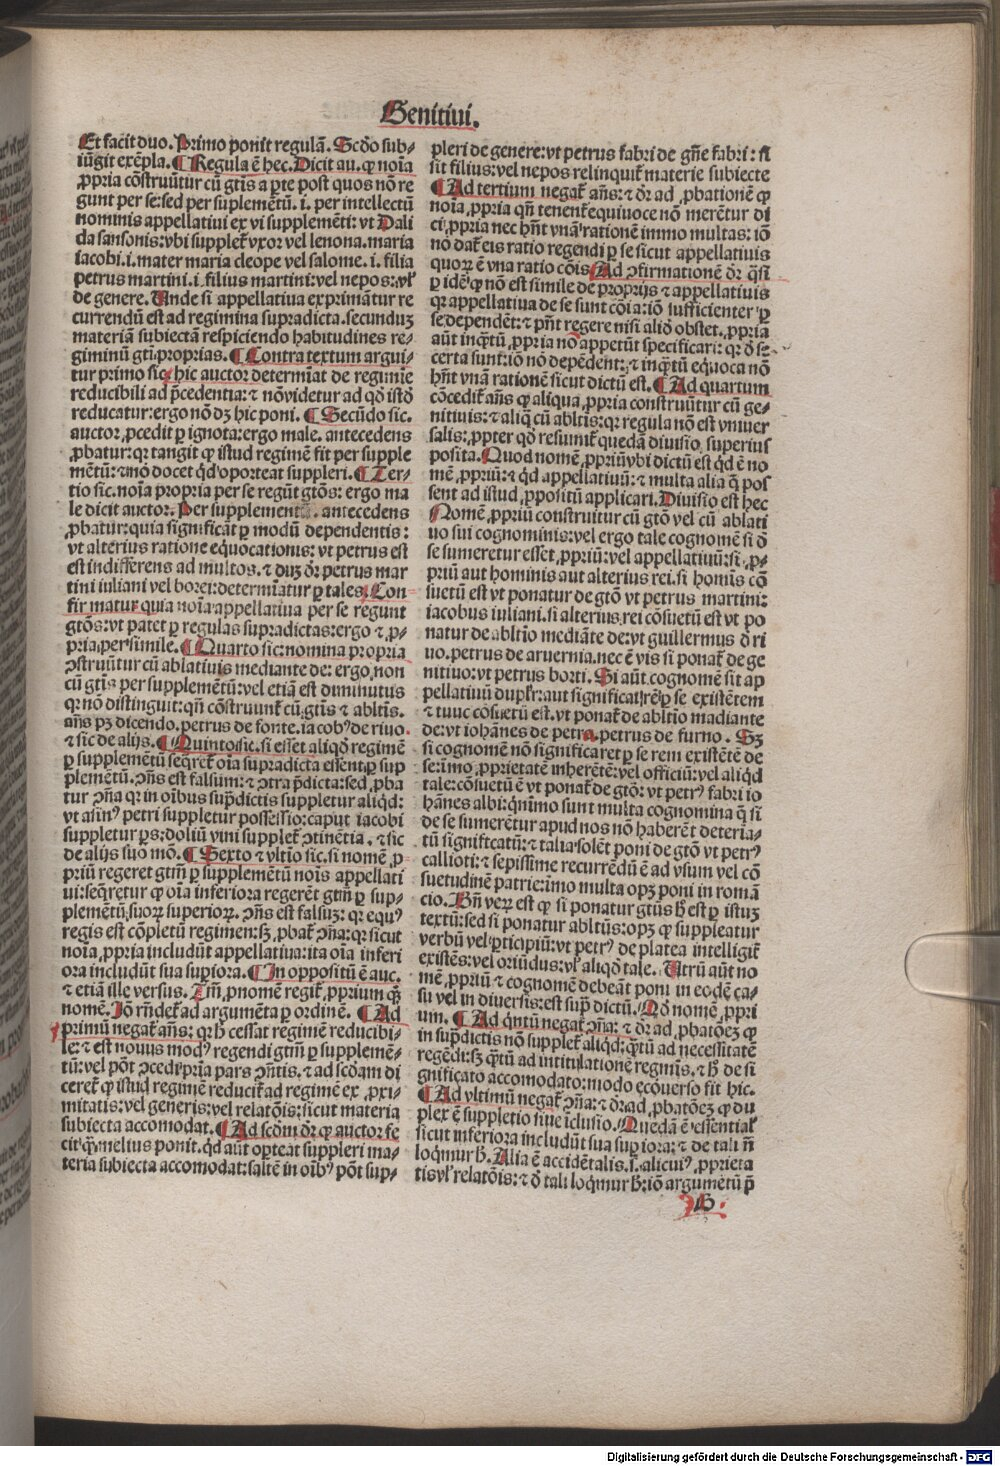 Genitiui.
Et facit duo. Primo ponit regulā. Scd̄o sub-
iūgit exēpla. ¶ Regula ē hec. Dicit au. ꝙ noīa
ꝓpria cōstruūtur cū gtīs a ꝑte post quos nō re
gunt per se: sed per suplemētū. i. per intellectū
nominis appellatiui ex vi supplemēti: vt Dali
da sansonis: vbi supplet̄ vxor vel lenona. maria
iacobi .i. mater maria cleope vel salome .i. filia
petrus martini .i. filius martini: vel nepos: vl̄
de genere. Unde si appellatiua exprimātur re
currendū est ad regimina supradicta. secunduȝ
materiā subiectā respiciendo habitudines re-
giminū gtī: proprias. ¶ Contra textum argui-
tur primo sic. hic auctor determīat de regimīe
reducibili ad p̄cedentia: ⁊ nō videtur ad qd̄ istd̄
reducatur: ergo nō dȝ hic poni. ¶ Secūdo sic.
auctor ꝓcedit ꝑ ignota: ergo male. antecedens
ꝓbatur: qr tangit ꝙ istud regimē fit per supple
mētū: ⁊ nō docet qd̓ oporteat suppleri. ¶ Ter-
tio sic. noīa propria per se regūt gtōs: ergo ma
le dicit auctor. Per supplement . antecedens
ꝓbatur: quia significāt ꝑ modū dependentis:
vt alterius ratione eq̄uocationis: vt petrus est
est indifferens ad multos. ⁊ duȝ dr̄ petrus mar
tini iuliani vel borei: determīatur ꝑ tales. Con
firmatur quia noīa appellatiua per se regunt
gtōs: vt patet ꝑ regulas supradictas: ergo ⁊ ꝓ-
pria: per simile. ¶ Quarto sic: nomina propria
ɔstruūtur cū ablatiuis mediante de: ergo non
cū gtīs per supplemētū: vel etiā est diminutus
qr nō distinguit: qn̄ cōstruunt̄ cū gtīs ⁊ abltīs.
añs pȝ dicendo. petrus de fonte. iacobꝰ de riuo.
⁊ sic de alijs. ¶ Quinto sic. si esset aliqd̄ regimē
ꝑ supplemētū seq̄ret̄ oīa supradicta essent ꝑ sup
plemētū. ɔñs est falsum: ⁊ ɔtra p̄dicta: sed ꝓba
tur ɔña qr in oībus sup̄dictis suppletur aliqd̄:
vt asinꝰ petri suppletur possessio: caput iacobi
suppletur ꝑs: doliū vini supplet̄ ɔtinētia. ⁊ sic
de alijs suo mō. ¶ Sexto ⁊ vltīo sic. si nomē ꝓ
priū regeret gtm̄ ꝑ supplemētū noīs appellati
ui: seq̄retur ꝙ oīa inferiora regerēt gtm̄ ꝑ sup-
plemētū suoꝝ superioꝝ. ɔñs est falsuȝ: qr equꝰ
regis est cōpletū regimen: sȝ ꝓbat̄ ɔña: qr sicut
noīa ꝓpria includūt appellatiua: ita oīa inferi
ora includūt sua sup̄iora. ¶ In oppositū ē auc.
⁊ etiā ille versus. Tm̄ ꝓnomē regit̄ ꝓprium qm̄
nomē. Iō rñdet̄ ad argumēta ꝑ ordinē. ¶ Ad
primū negat̄ añs: qr hͨ cessat regimē reducibi-
le: ⁊ est nouus modꝰ regendi gtm̄ ꝑ supplemē-
tū: vel pōt ɔcedi ꝓpria pars ɔñtis. ⁊ ad scd̄am di
ceret̄ ꝙ istud regimē reducit̄ ad regimē ex ꝓxi-
mitatis: vel generis: vel relatōis: sicut materia
subiecta accomodat. ¶ Ad scdm̄ dr̄ ꝙ auctor fe
cit qm̄ melius ponit. qd̄ aūt opteat suppleri ma-
teria subiecta accomodat: saltē in oībꝰ pōt sup-
pleri de genere: vt petrus fabri de gñe fabri: si
sit filius: vel nepos relinquit̄ materie subiecte
¶ Ad tertium negat̄ añs: ⁊ dr̄ ad ꝓbationē ꝙ
noīa ꝓpria qn̄ tenent̄ equiuoce nō merētur di
ci ꝓpria nec hn̄t vnā rationē immo multas: iō
nō dat̄ eis ratio regendi ꝑ se sicut appellatiuis
quoꝝ ē vna ratio cōis. Ad ɔfirmationē dr̄ q̄si
ꝑ idē ꝙ nō est simile de proprijs ⁊ appellatiuis
qr appellatiua de se sunt cōia: iō sufficienter ꝑ
se dependēt: ⁊ pn̄t regere nisi aliqd̄ obstet. ꝓpria
aūt inqm̄tū ꝓpria nō appetūt specificari: qr d̄ se
certa sunt: iō nō depēdent: ⁊ inqm̄tū equoca nō
hn̄t vnā rationē sicut dictū est. ¶ Ad quartum
cōcedit̄ añs ꝙ aliqua ꝓpria construūtur cū ge-
nitiuis: ⁊ aliq̄ cū abltīs: qr regula nō est vniuer
salis: ꝓpter qd̄ resumit̄ quedā diuisio superius
posita. Quod nomē ꝓpriū vbi dictū est qd̄ ē no
mē ꝓpriū: ⁊ qd̄ appellatiuū: ⁊ multa alia q̄ pos
sent ad istud ꝓpositū applicari. Diuisio est hec
Nomē ꝓpriū construitur cū gtō vel cū ablati
uo sui cognominis: vel ergo tale cognomē si d̄
se sumeretur esset ꝓpriū: vel appellatiuū: si ꝓ-
priū aut hominis aut alterius rei. si homīs cō
suetū est vt ponatur de gtō vt petrus martini:
iacobus iuliani. si alterius rei cōsuetū est vt po
natur de abltīo mediāte de: vt guillermus d̄ ri
uo. petrus de aruernia. nec ē vis si ponat̄ de ge
nitiuo: vt petrus borti. Si aūt cognomē sit ap
pellatiuū duplr̄: aut significat rē ꝑ se existētem
⁊ tunc cōsuetū est vt ponat̄ de abltīo madiante
de: vt iohānes de petra. petrus de furno. Sȝ
si cognomē nō significaret ꝑ se rem existētē de
se: īmo ꝓprietatē inherētē: vel officiū: vel aliqd̄
tale: cōsuetū ē vt ponat̄ de gtō: vt petrꝰ fabri io
hānes albi: qn̄imo sunt multa cognomina q̄ si
de se sumerētur apud nos nō haberēt determīa-
tū significatū: ⁊ talia solēt poni de gtō vt petrꝰ
callioti: ⁊ sepissime recurrēdū ē ad vsum vel cō
suetudinē patrie: īmo multa opȝ poni in romā
cio. Bñ veꝝ est ꝙ si ponatur gtūs hͨ est ꝑ istuȝ
textū: sed si ponatur abltūs: opȝ ꝙ suppleatur
verbū vel ꝑticipiū: vt petrꝰ de platea intelligit̄
existēs: vel oriūdus: vl̄ aliqd̄ tale. Utrū aūt no
mē ꝓpriū ⁊ cognomē debeāt poni in eodē ca-
su vel in diuersis: est sup̄ dictū. Qd̄ nomē ꝓpri
um. ¶ Ad qn̄tū negat̄ ɔña: ⁊ dr̄ ad ꝓbatōeȝ ꝙ
in sup̄dictis nō supplet̄ aliqd̄: qm̄tū ad necessitatē
regēdi: sȝ qm̄tū ad intitulationē regmīs. ⁊ hͨ de si
gnificato accomodato: modo ecōuerso fit hic.
¶ Ad vltimū negat̄ ɔña: ⁊ dr̄ ad ꝓbatōeȝ ꝙ du
plex ē suppletio siue īclusio. Quedā ē essential̓
sicut inferiora includūt sua sup̄iora: ⁊ de tali nō
loqm̄ur hͨ. Alia ē accidētalis. s. alicuiꝰ ꝓprieta
tis vl̄ relatōis: ⁊ d̄ tali loqm̄ur hͨ: iō argumētū p̄
B
Digitalisierung gefördert durch die Deutsche Forschungsgemeinschaft - DFG